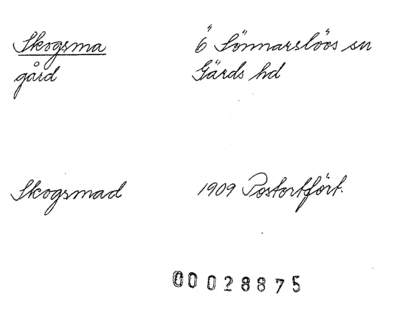 Skogsma Ö Sönnarslövs sn
gård Gärds hd
Skogsmad 1909 Postortfört.
00028875